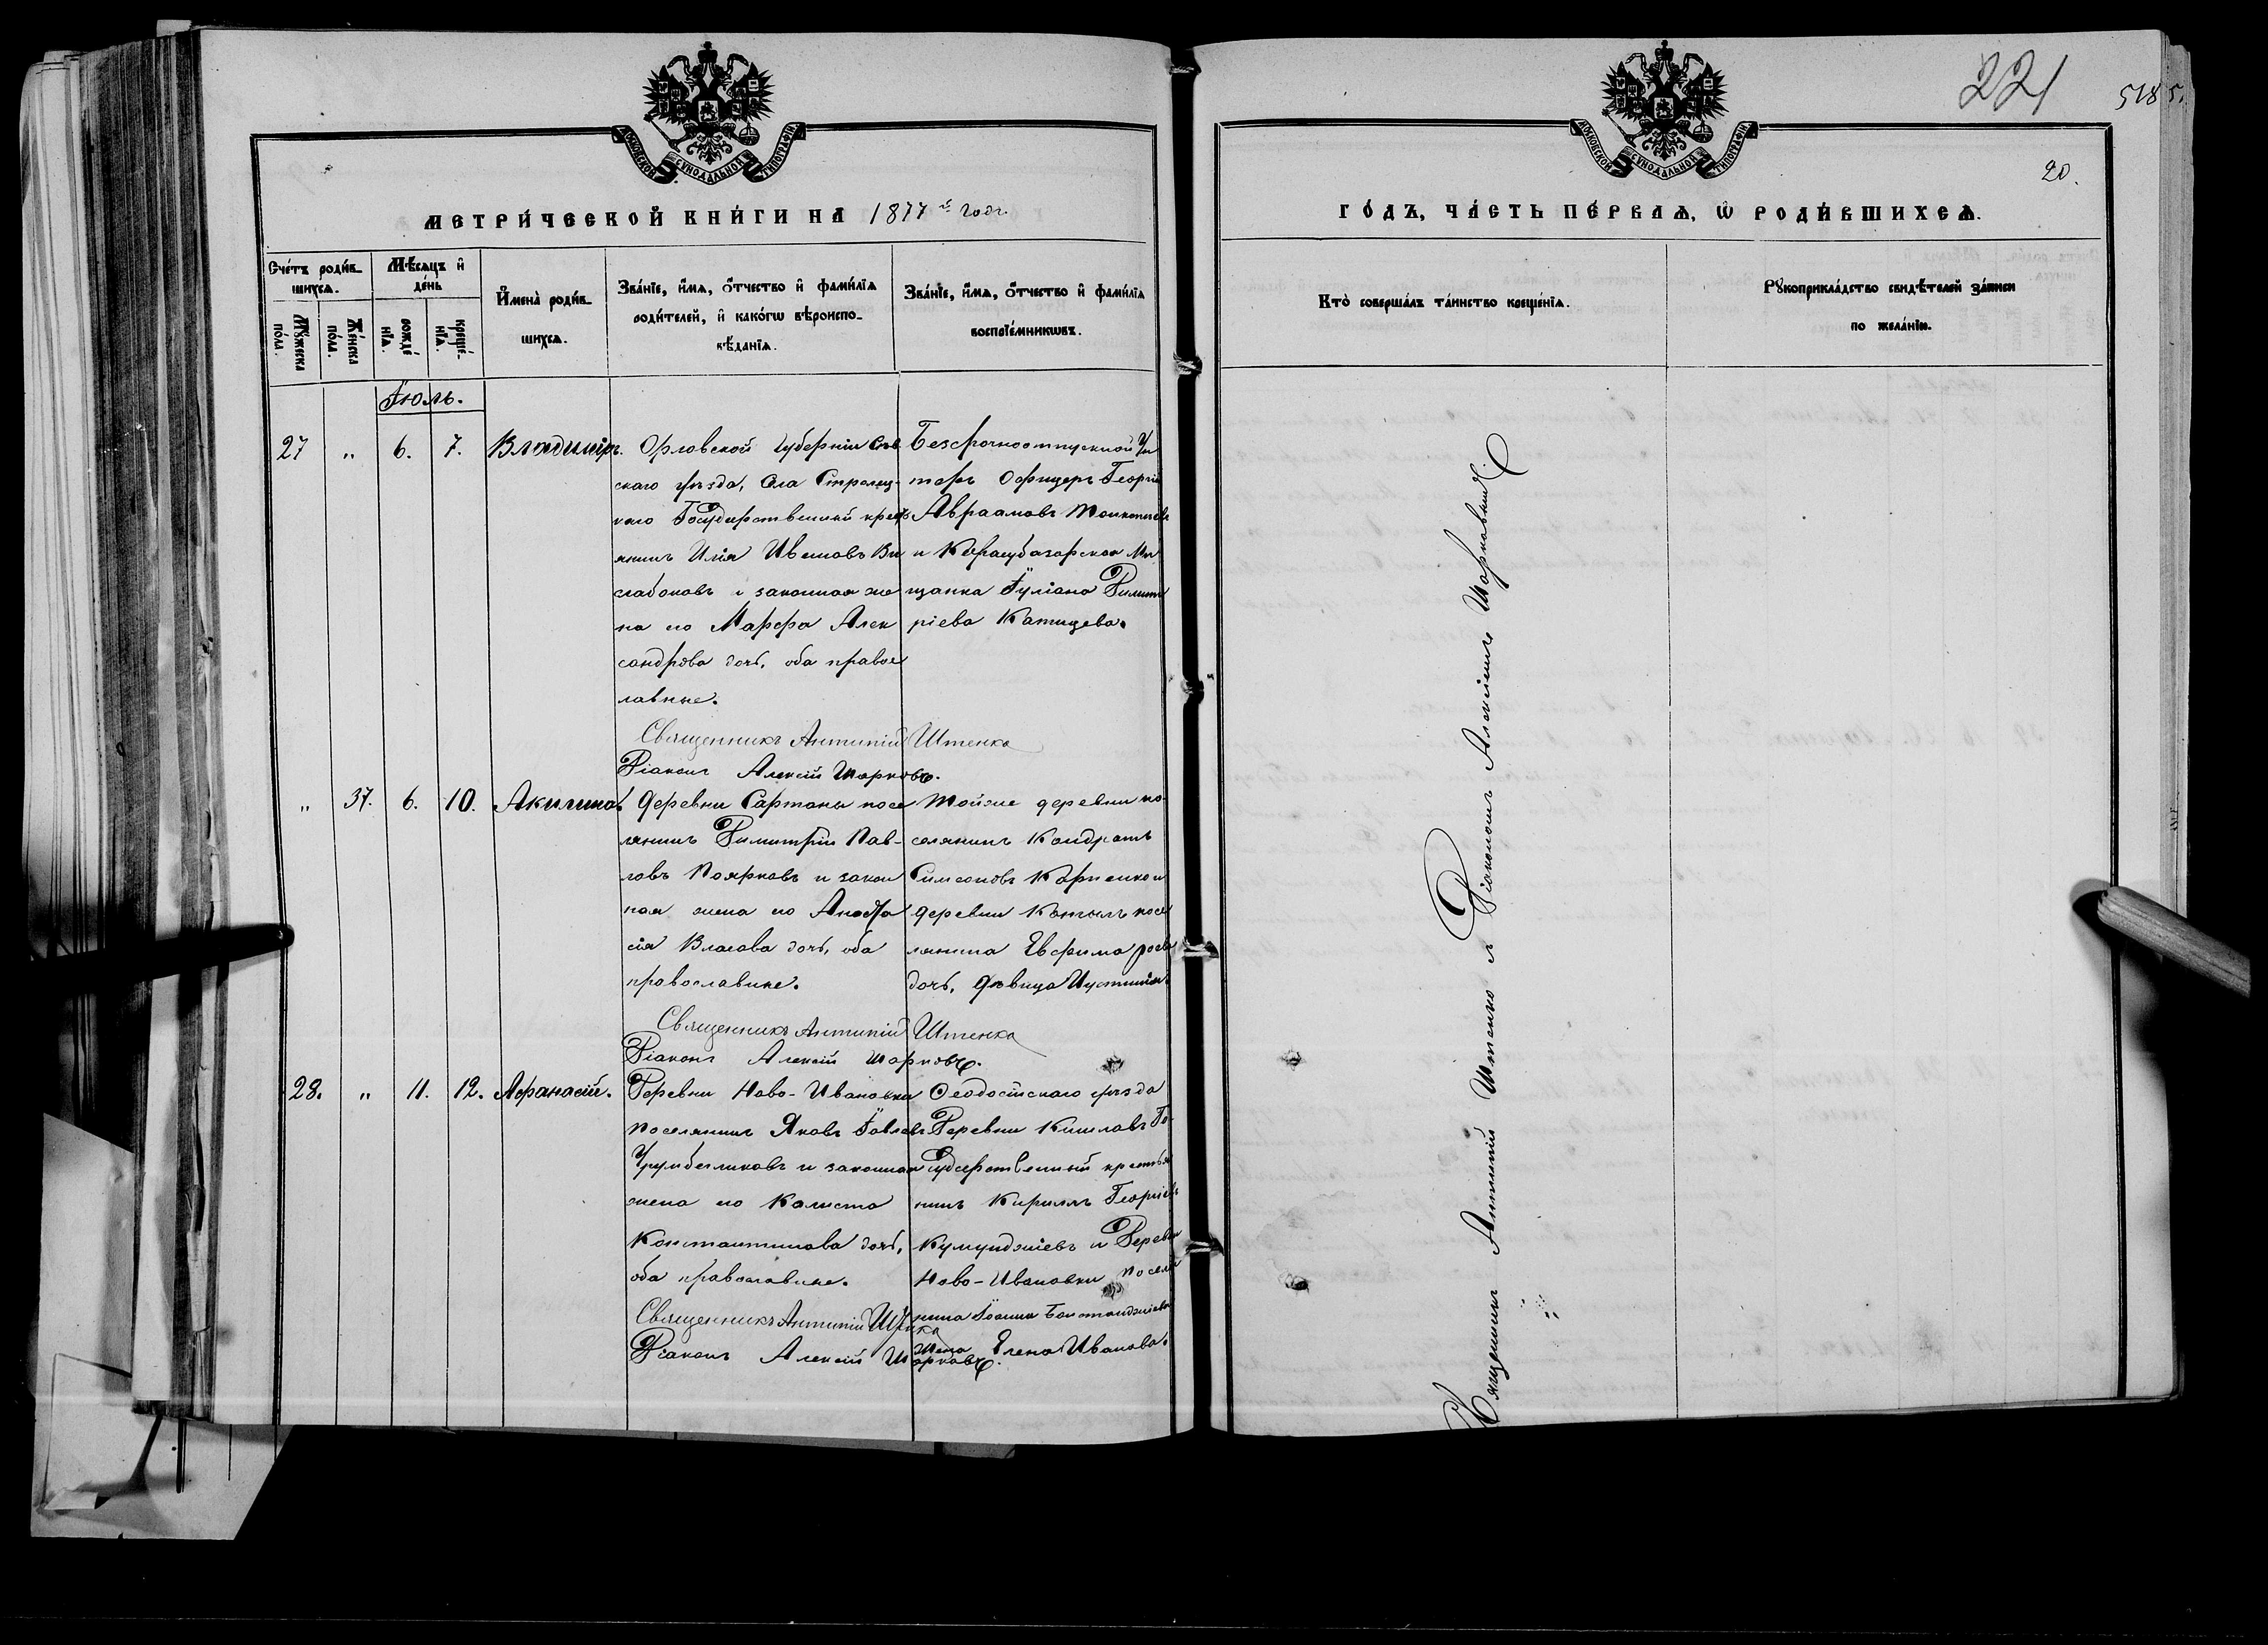 221
518
20.
МОСКОВСКОЙ СѴНОДАЛЬНОЙ ТИПОГРАФІИ
МЕТРИ́ЧЕСКОЙ КНИ́ГИ НА 1877 й годъ.
Сче́тъ роди́вшихсѧ.
Мѣ́сѧцъ и҆ де́нь
И҆мена̀ роди́вшихсѧ.
Зва́нїе, и҆́мѧ, ѻ҆́тчество и҆ фамилїѧ родителей, и҆ како́гѡ вѣроисповѣ́данїѧ.
Зва́нїе, и҆́мѧ, ѻ҆́тчество и҆ фами́лїѧ воспрїе́мникѡвъ.
Мꙋ́жеска по́ла.
Же́нска по́ла.
рожде́нїѧ.
креще́нїѧ.
Іюль.
27 „ 6. 7. Владиміръ.
Орловской губерніи Сев
скаго уѣзда, Села Стрелец-
каго Государственный кресть
янинъ Илія Ивановъ
и законная же
на его Марѳа Алек
сандрова дочь, оба правос
лавные.
Безсрочноотпускной Ун
теръ Офицеръ Георгій
Авраамовъ
и Карасубазарская Мѣ
щанка Іуліана Димит
ріева Катицева.
Священникъ Антипій Штенко
Діаконъ Алексій Шарковъ.
„ 37. 6. 10. Акилина.
Деревни Сартаны посе
лянинъ Димитрій Пав-
ловъ Поярковъ и закон
ная жена его Анаста
сія Власова дочь, оба
православные.
Тойже деревни по
селянинъ Кондратъ
Симеоновъ и
деревни посе
лянина Евфима
дочь, дѣвица Иустинія.
Священникъ Антипій Штенко
Діаконъ Алексій Шарковъ.
28. „ 11. 12. Аѳанасій.
Деревни Ново-Ивановки
поселянинъ Яковъ
и законная
жена его Калиста
Константинова дочь,
оба православные.
Ѳеодосійскаго уѣзда
Деревни Кишлавъ Го-
сударственный крестья
нинъ Кириллъ Георгіевъ
Кумунджіевъ и Деревни
Ново-Ивановки поселя
нина Іоанна
жена Елена Иванова.
Священникъ Антипій Штенко
Діаконъ Алексій Шарковъ.
МОСКОВСКОЙ СѴНОДАЛЬНОЙ ТИПОГРАФІИ
ГО́ДЪ, ЧА́СТЬ ПЕ́РВАѦ, Ѡ҆ РОДИ́ВШИХСѦ.
Кто̀ соверша́лъ та́инство креще́нїѧ.
Рꙋкоприкла́дство свидѣ́телей за́писи по жела́нїю.
Священникъ Антипій Штенко и Діакономъ Алексіемъ Шарковымъ